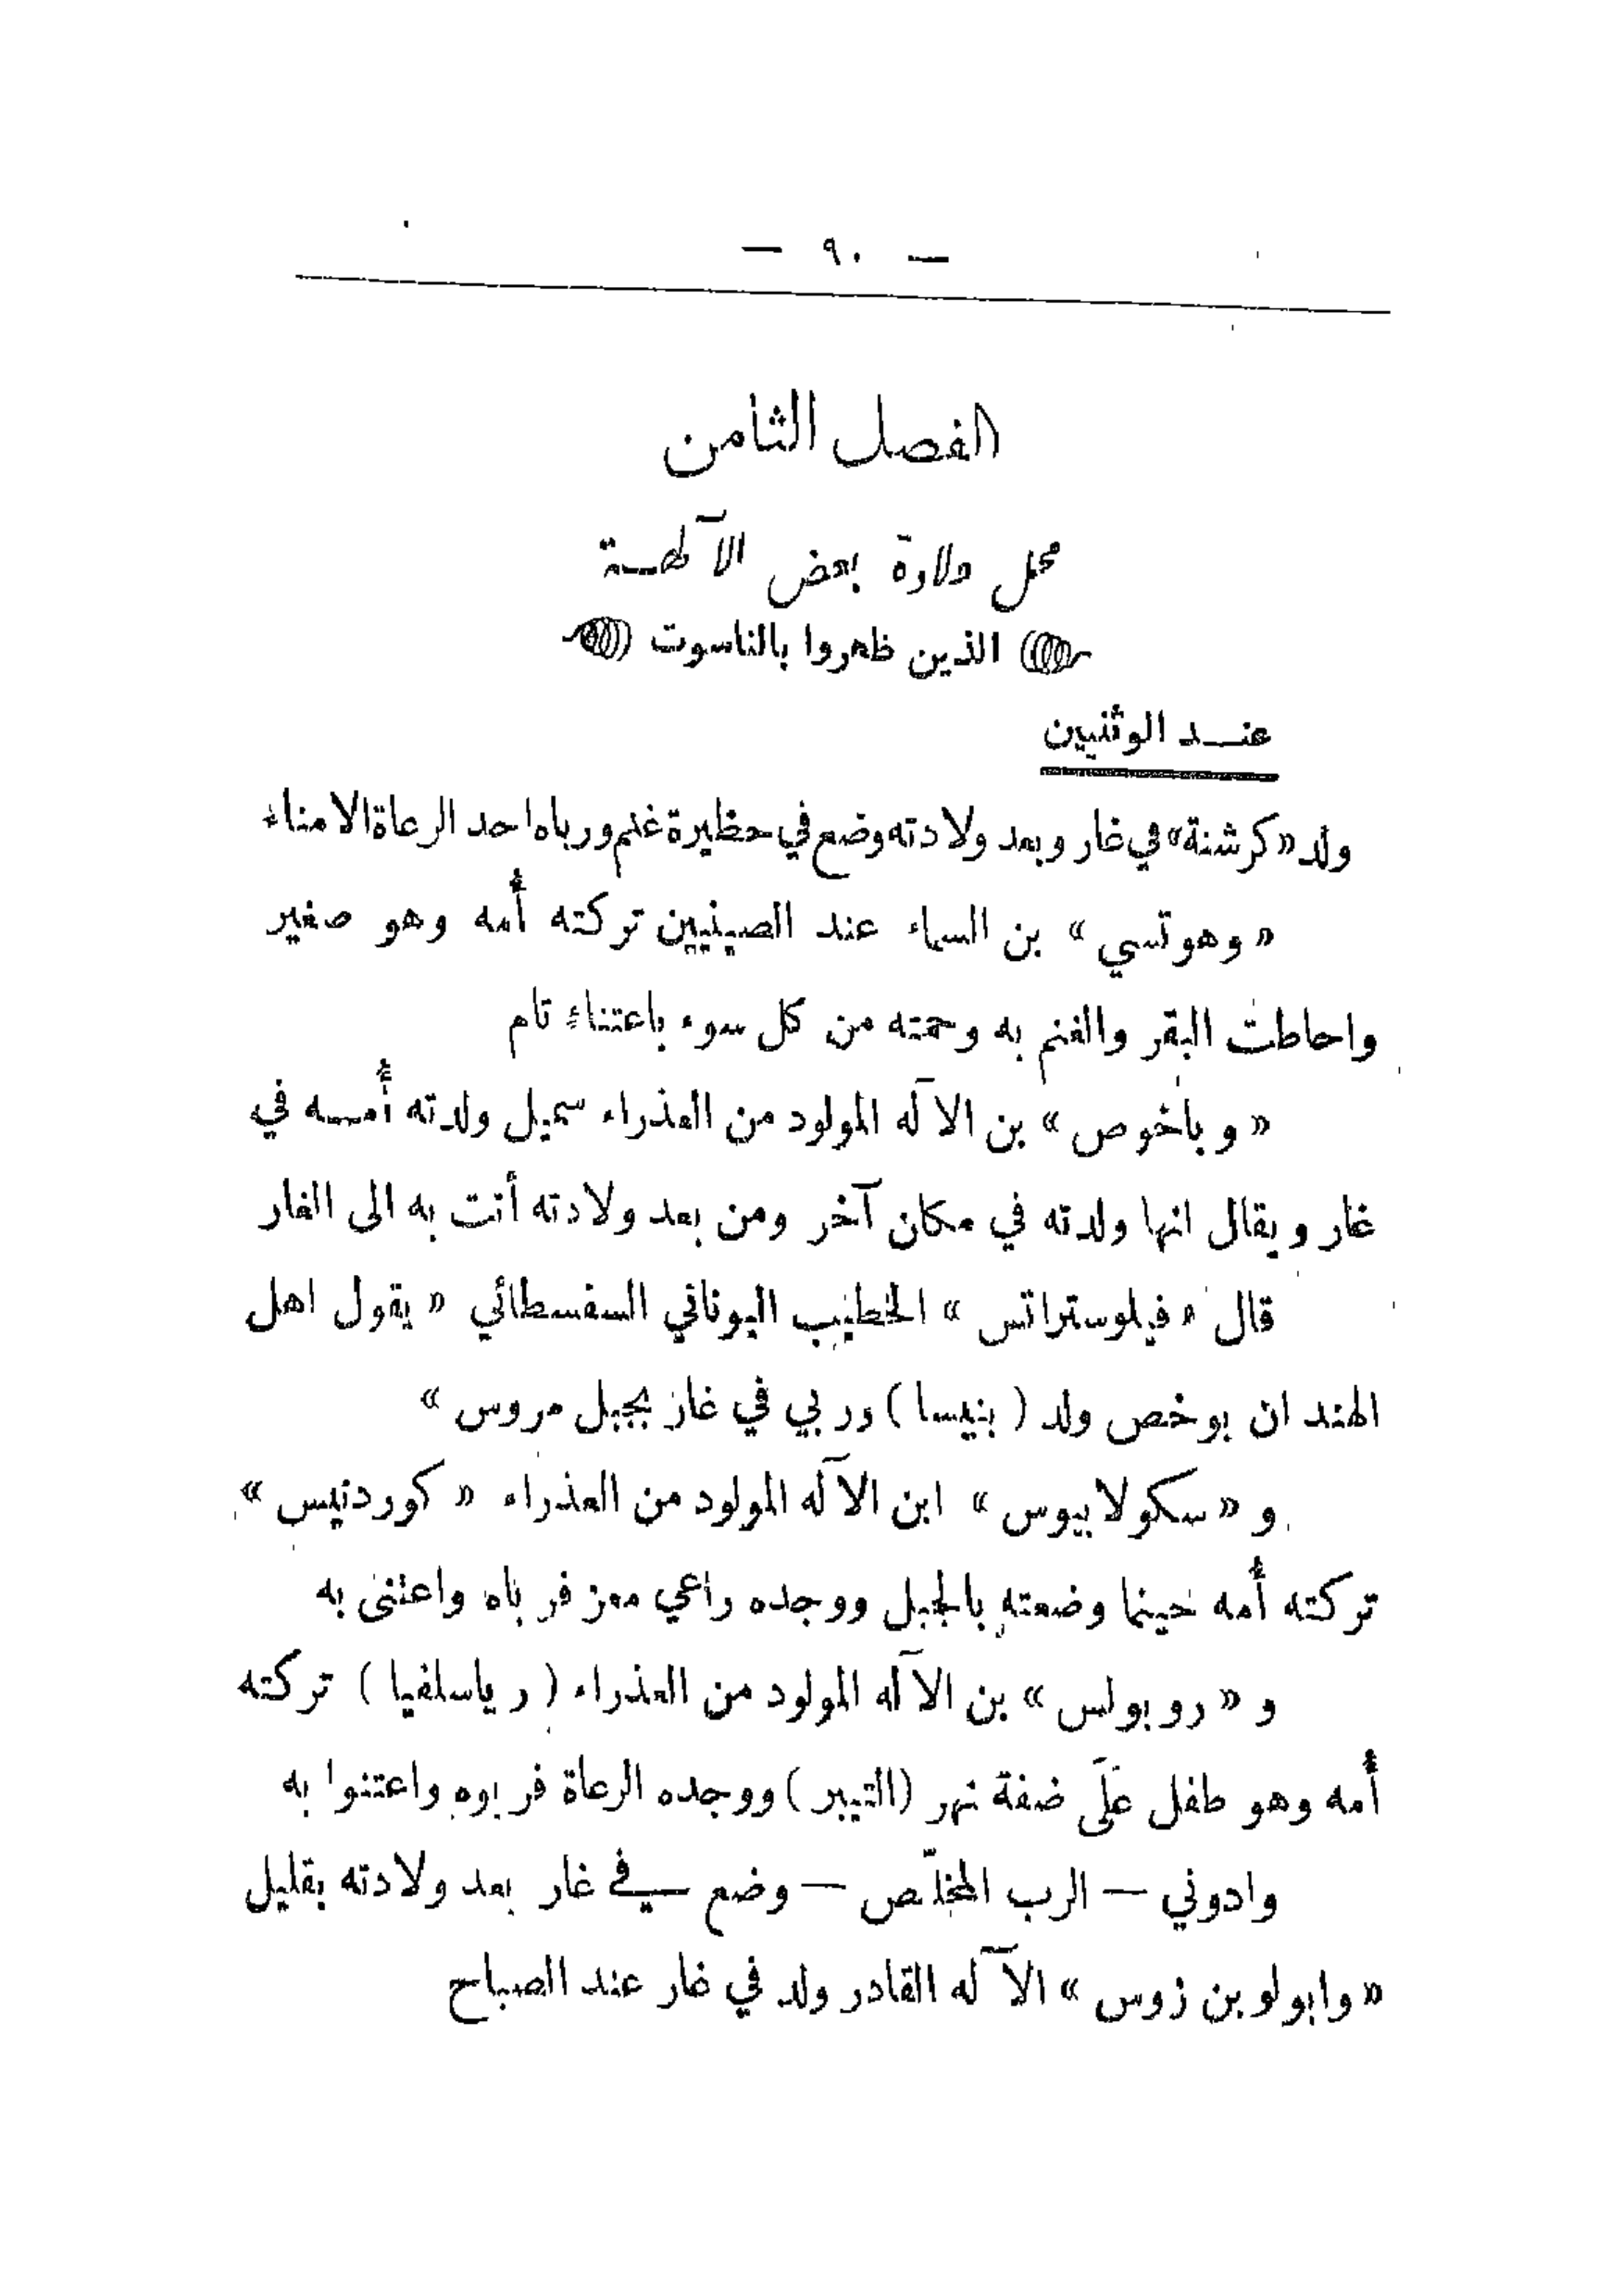 — ٩٠ —
الفصل الثامن
محل ولادة بعض الآلهة
الذين ظهروا بالناسوت
عند الوثنيين
ولد «كرشنة» في غار وبعد ولادته وضع في حظيرة غنم ورباه احد الرعاة الامناء
«وهوتسي» بن السماء عند الصينيين تركته أُمه وهو صغير
واحاطت البقر والغنم به وحمته من كل سوء باعتناءٍ تام
«وباخوص» بن الآله المولود من العذراء سميل ولدته أُمه في
غار ويقال انها ولدته في مكان آخر ومن بعد ولادته أتت به الى الغار
قال «فيلوستراتس» الخطيب اليوناني السفسطائي «يقول اهل
الهند ان بوخص ولد (بنيسا) وربي في غار بجبل مروس»
و «سكولابيوس» ابن الآله المولود من العذراء «كوردنيس»
تركته أُمه حينما وضعته بالجبل ووجده راعي معز فرباه واعتنى به
و «روبولس» بن الآله المولود من العذراء (رياسلفيا) تركته
أُمه وهو طفل عَلَى ضفة نهر (التيبر) ووجده الرعاة فربوه واعتنوا به
وادوني — الرب المخلّص — وضع في غار بعد ولادته بقليل
«وابولو بن زوس» الآله القادر ولد في غار عند الصباح